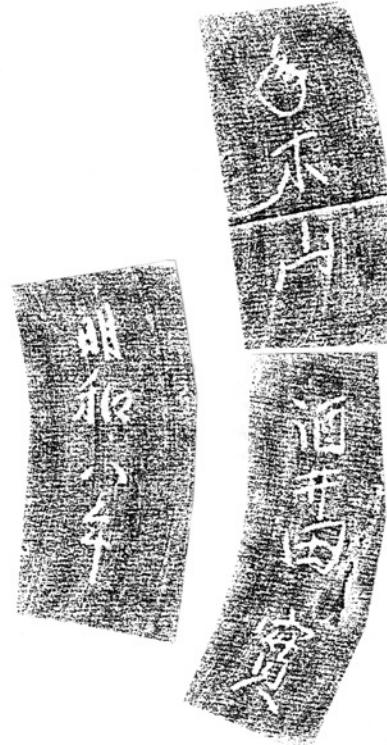 年木山
酒井田 寳
明和八年